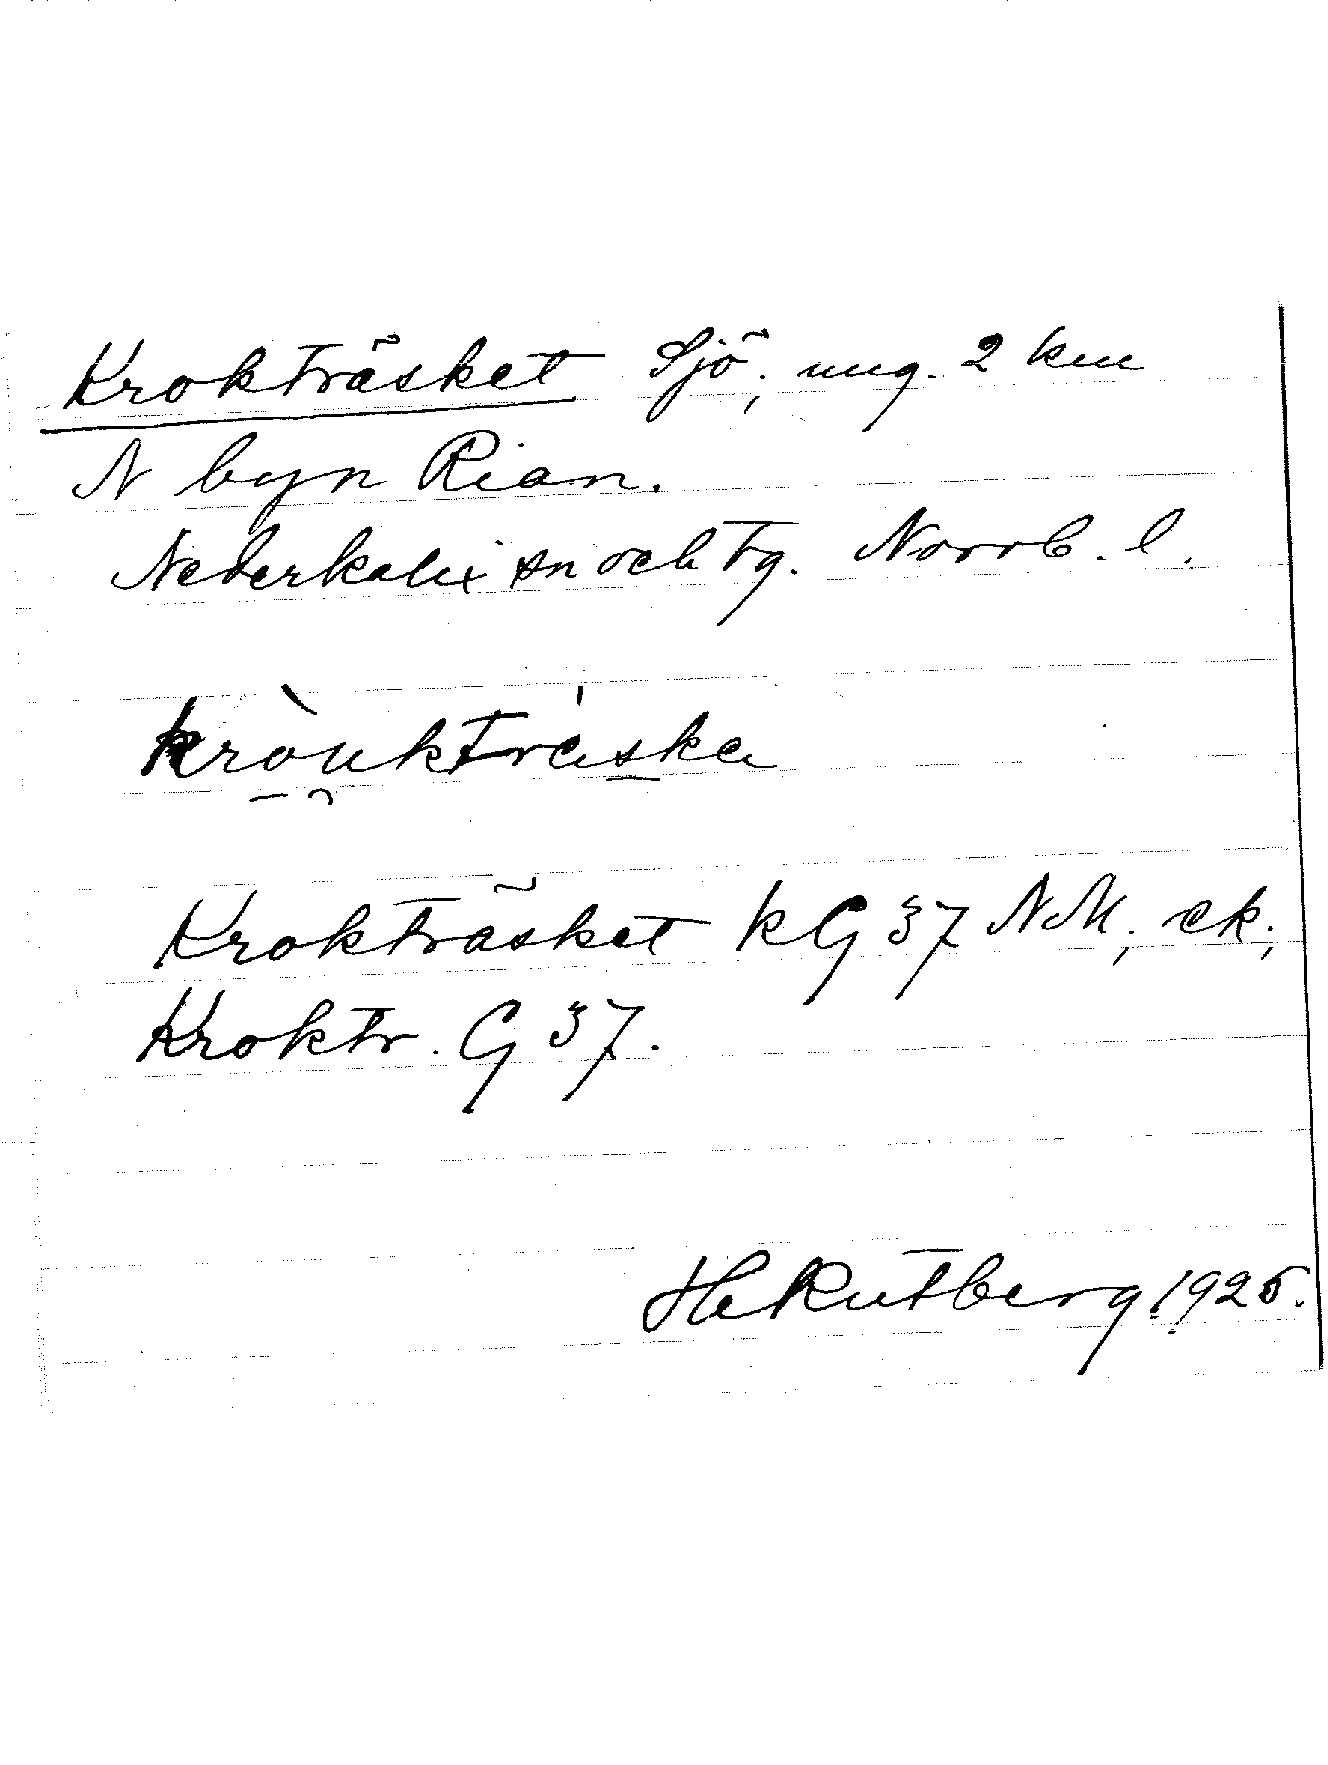 Krokträsket Sjö; ung. 2 km
N byn Rian.
Nederkalix sn och tg. Norrb. l.
kròuktráska
Krokträsket kG 37 NM; ek;
Kroktr. G 37.
Hÿ Rutberg 1925.